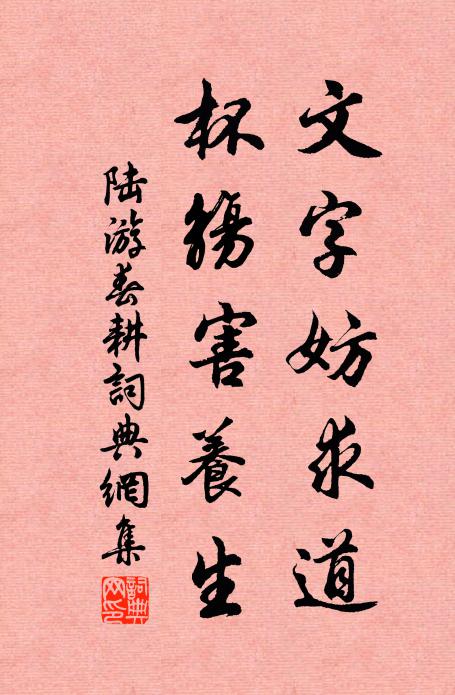 文字妨求道
杯觴害養生
陆游春耕詞典網集
詞典網印